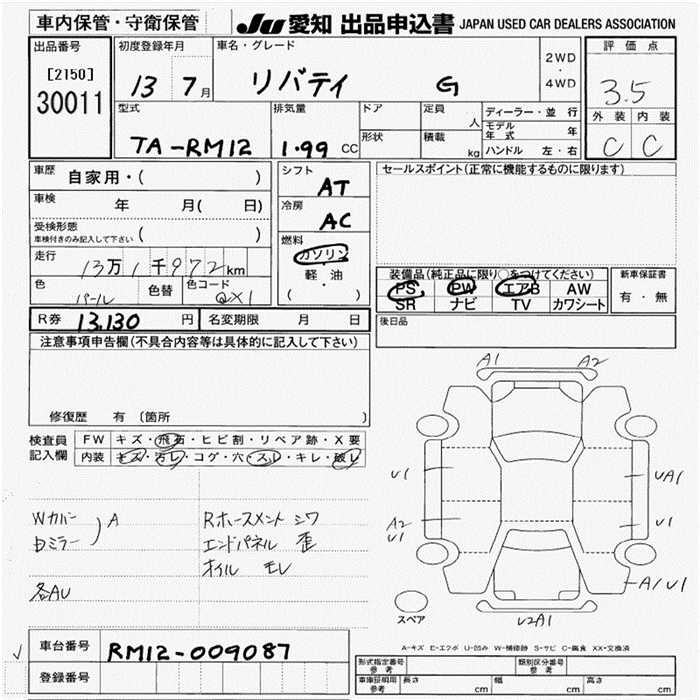 車内保管・守衛保管
JU 愛知 出品申込書 JAPAN USED CAR DEALERS ASSOCIATION
出品番号
[2150]
30011
初度登録年月
13 7月
車名・グレード
リバティ G
2WD
・
4WD
評価点
3.5
外装 内装
C C
型式
TA-RM12
排気量
1.99 CC
ドア
形状
定員
人
積載
kg
ディーラー・並行
モデル年式 年
ハンドル 左・右
車歴 自家用・( )
車検 年 月( 日)
受検形態
車検付きのみ記入して下さい ( )
走行
13万1千972km
色 パール 色替 色コード QX1
シフト
AT
冷房
AC
燃料
ガソリン
・
軽・油
( )
セールスポイント(正常に機能するものに限ります)
装備品(純正品に限り○をつけてください)
PS PW エアB AW
SR ナビ TV カワシート
新車保証書
有・無
後日品
R券 13,130 円 名変期限 月 日
注意事項申告欄(不具合内容等は具体的に記入して下さい)
修復歴 有(箇所 )
検査員記入欄
FW キズ・飛石・ヒビ割・リペア跡・X要
内装 キズ・汚レ・コゲ・穴・スレ・キレ・破レ
Wカバー
Dミラー ) A
各AU
Rホースメント シワ
エンドパネル 歪
オイル モレ
A1 A2
U1 UA1
A2 U1
U1
A1U1
U2A1
スペア
A-キズ E-エクボ U-凹み W-補修跡 S-サビ C-腐食 XX-交換済
車台番号 RM12-009087
登録番号
形式指定番号 参考
類別区分番号 参考
車庫証明用 参考 長さ cm 幅 cm 高さ cm